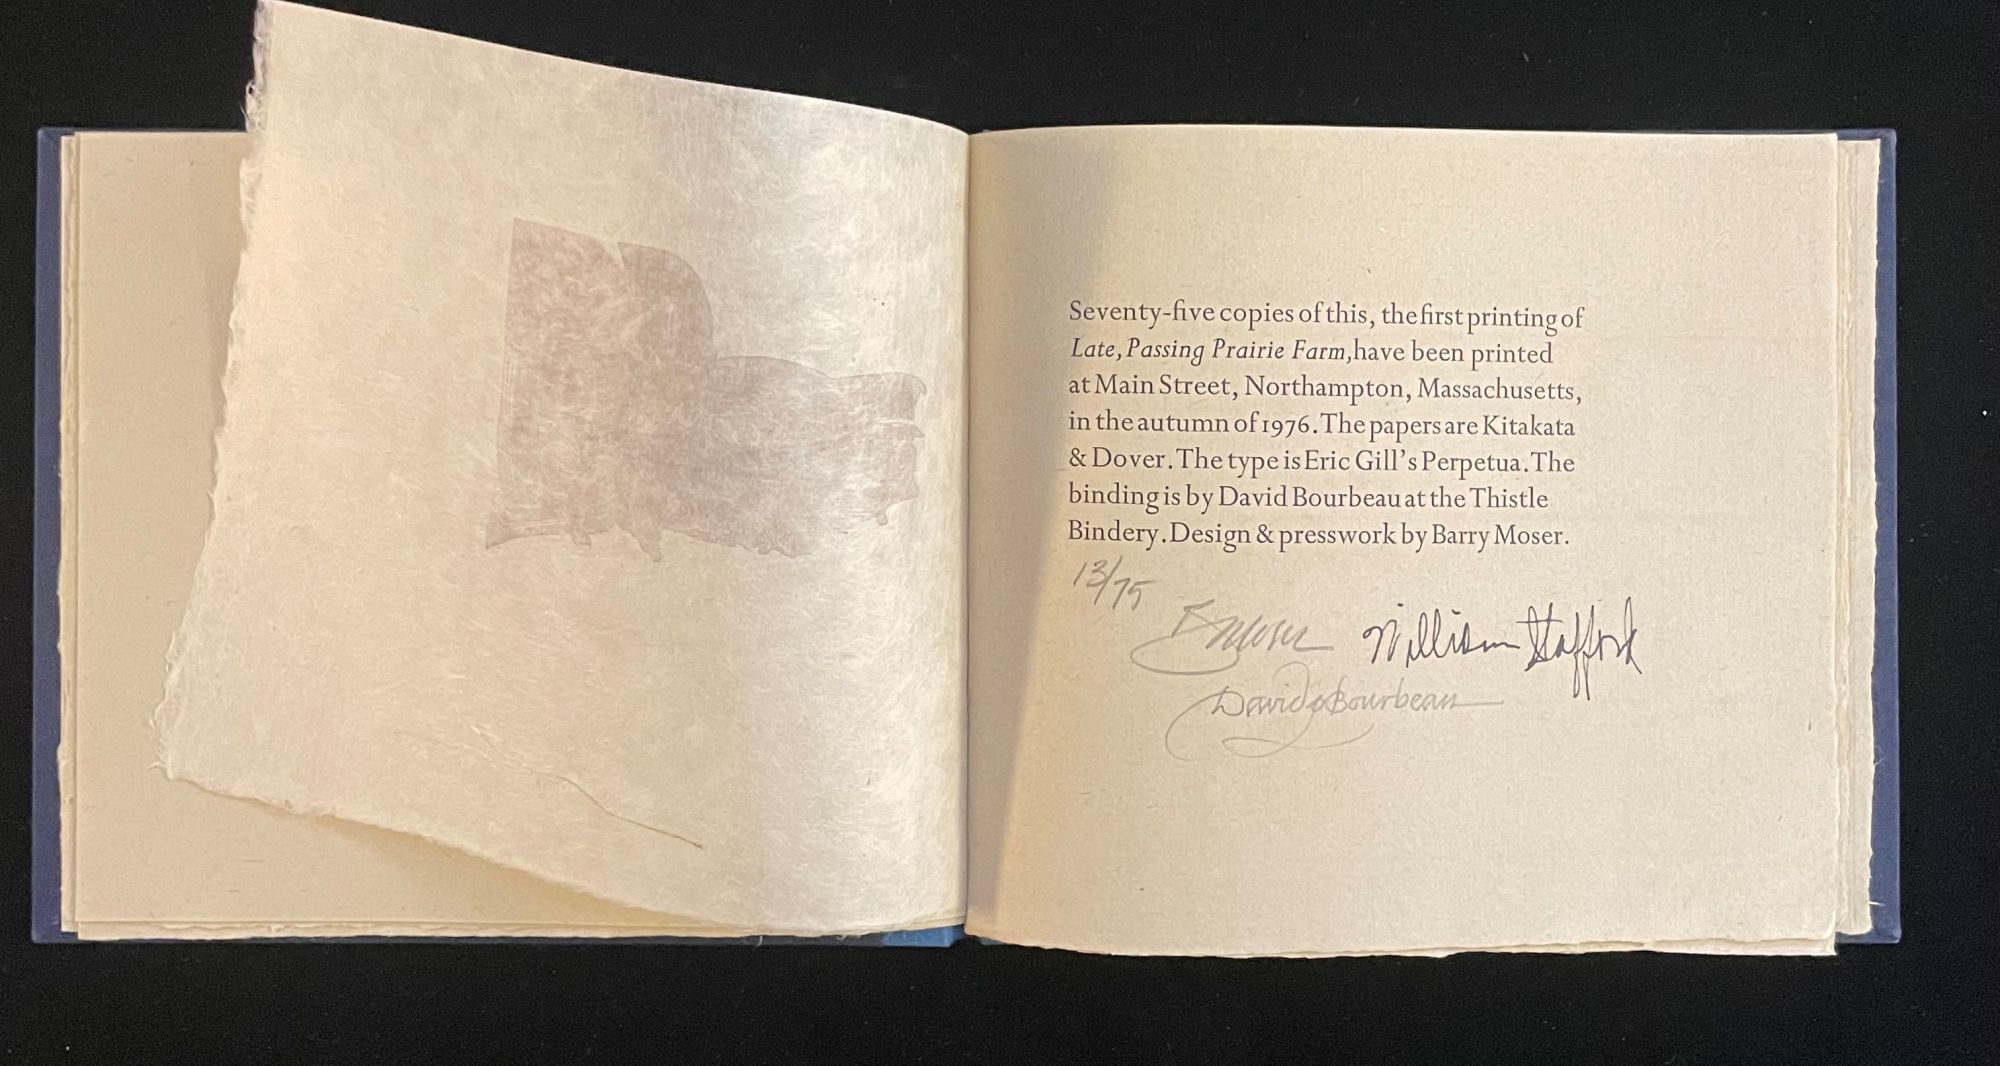 Seventy-five copies of this, the first printing of
Late, Passing Prairie Farm, have been printed
at Main Street, Northampton, Massachusetts,
in the autumn of 1976. The papers are Kitakata
& Dover. The type is Eric Gill's Perpetua. The
binding is by David Bourbeau at the Thistle
Bindery. Design & presswork by Barry Moser.
13/75
BMoser William Stafford
David Bourbeau